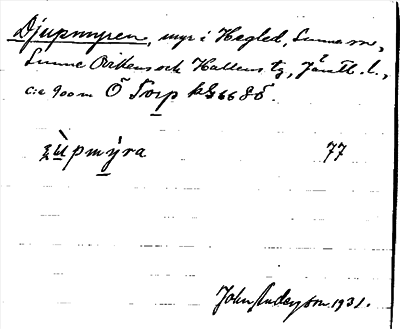 Djupmyren, myr i Hegled, Sunne sn,
Sunne Ovikens och Hallens tg, Jämtl. l.,
c:a 900 m Ö Torp
ʒu̇̀pmy̆ra 77
John Anderson 1931.